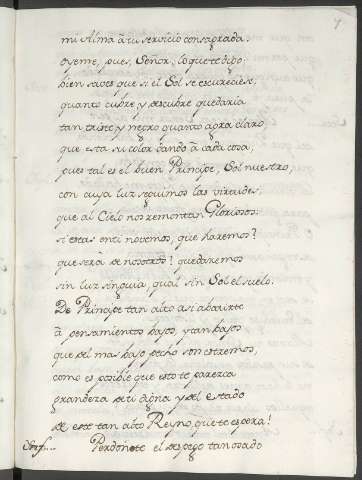 7
mi Alma à tu servicio consagrada:
oyeme, pues, Señor, lo que te digo:
bien saves que si el Sol se escureciese,
quanto cubre, y descubre quedaria
tan triste, y negro quanto agora claro,
que esta su color dando à cada cosa;
pues tal es el buen Principe, Sol nuestro,
con cuya luz seguimos las virtudes,
que al Cielo nos remontan Gloriosos:
si estas en ti no vemos, que haremos?
que serà de nosotros? quedaremos
sin luz ninguna, qual sin Sol el suelo.
De Principe tan alto asi abatirte
à pensamientos bajos, y tan bajos
que del mas bajo pecho son estremos,
como es posible que esto te parezca
grandeza de ti digna y del estado
de este tan alto Reyno, que te espera!
Perdonete el despejo tan osado